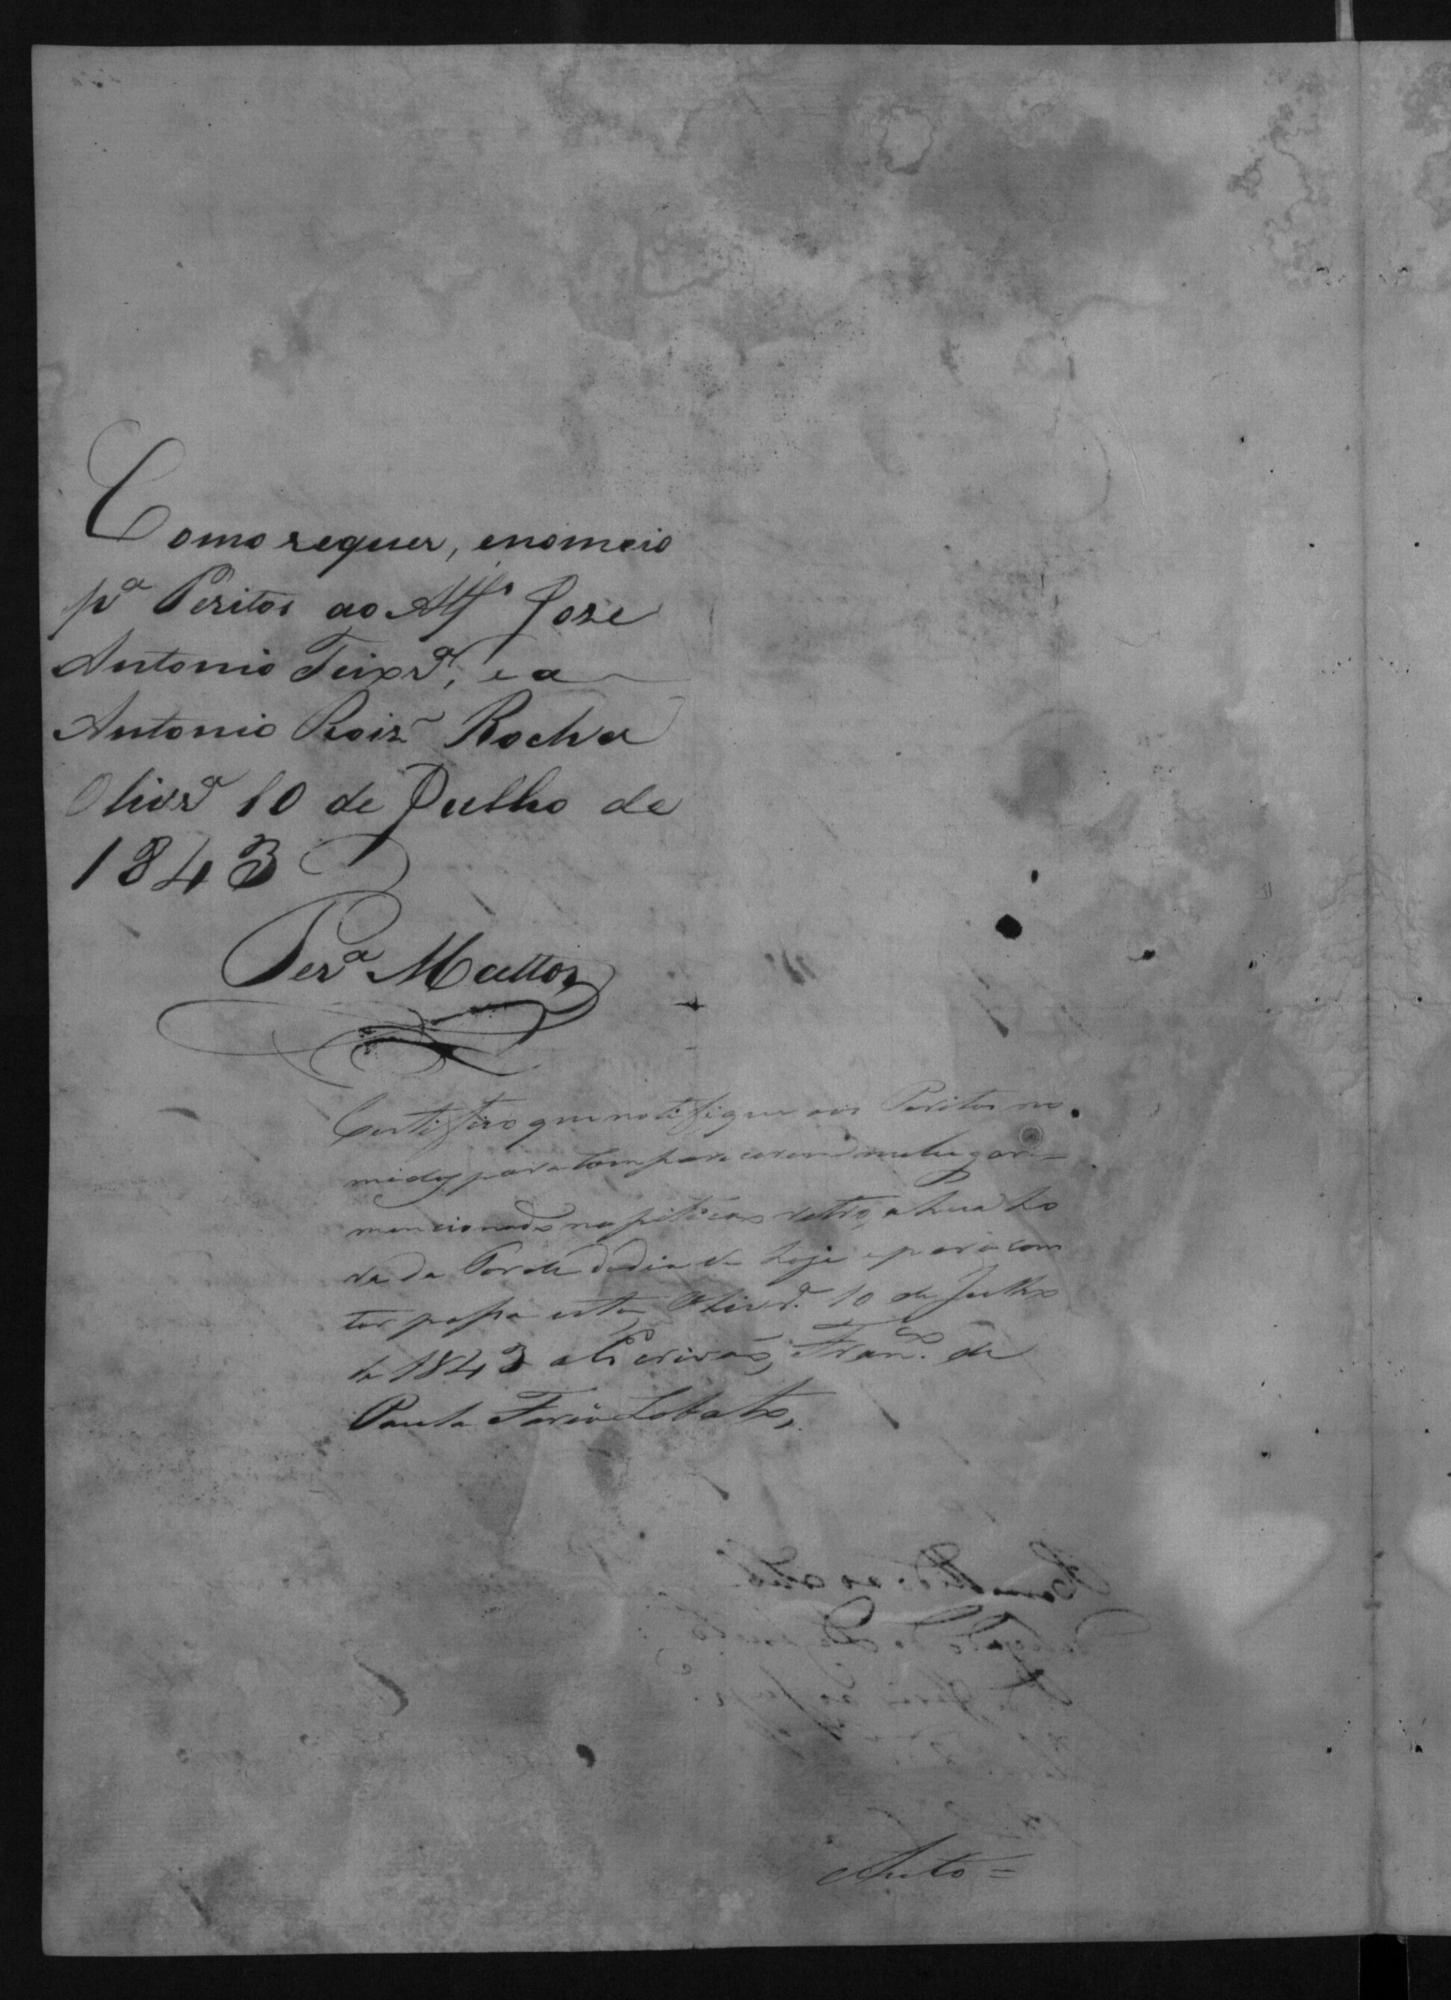 Como requer, e nomeio
pª Peritos ao Alfs Joze
Antonio Teixrª, e a
Antonio Roiz Rocha
Olivrª 10 de Julho de
1843
Perª Mattos
Certifico que notifiquei aos Peritos no
miados para comparecerem no lugar
mencionado na petição retro, a huma ho
ra da Tarde do dia de hoje e para cons
tar passo esta Olivrª. 10 de Julho
de 1843 o Escrivão, Franco. de
Paula Faria Lobato,
Auto =